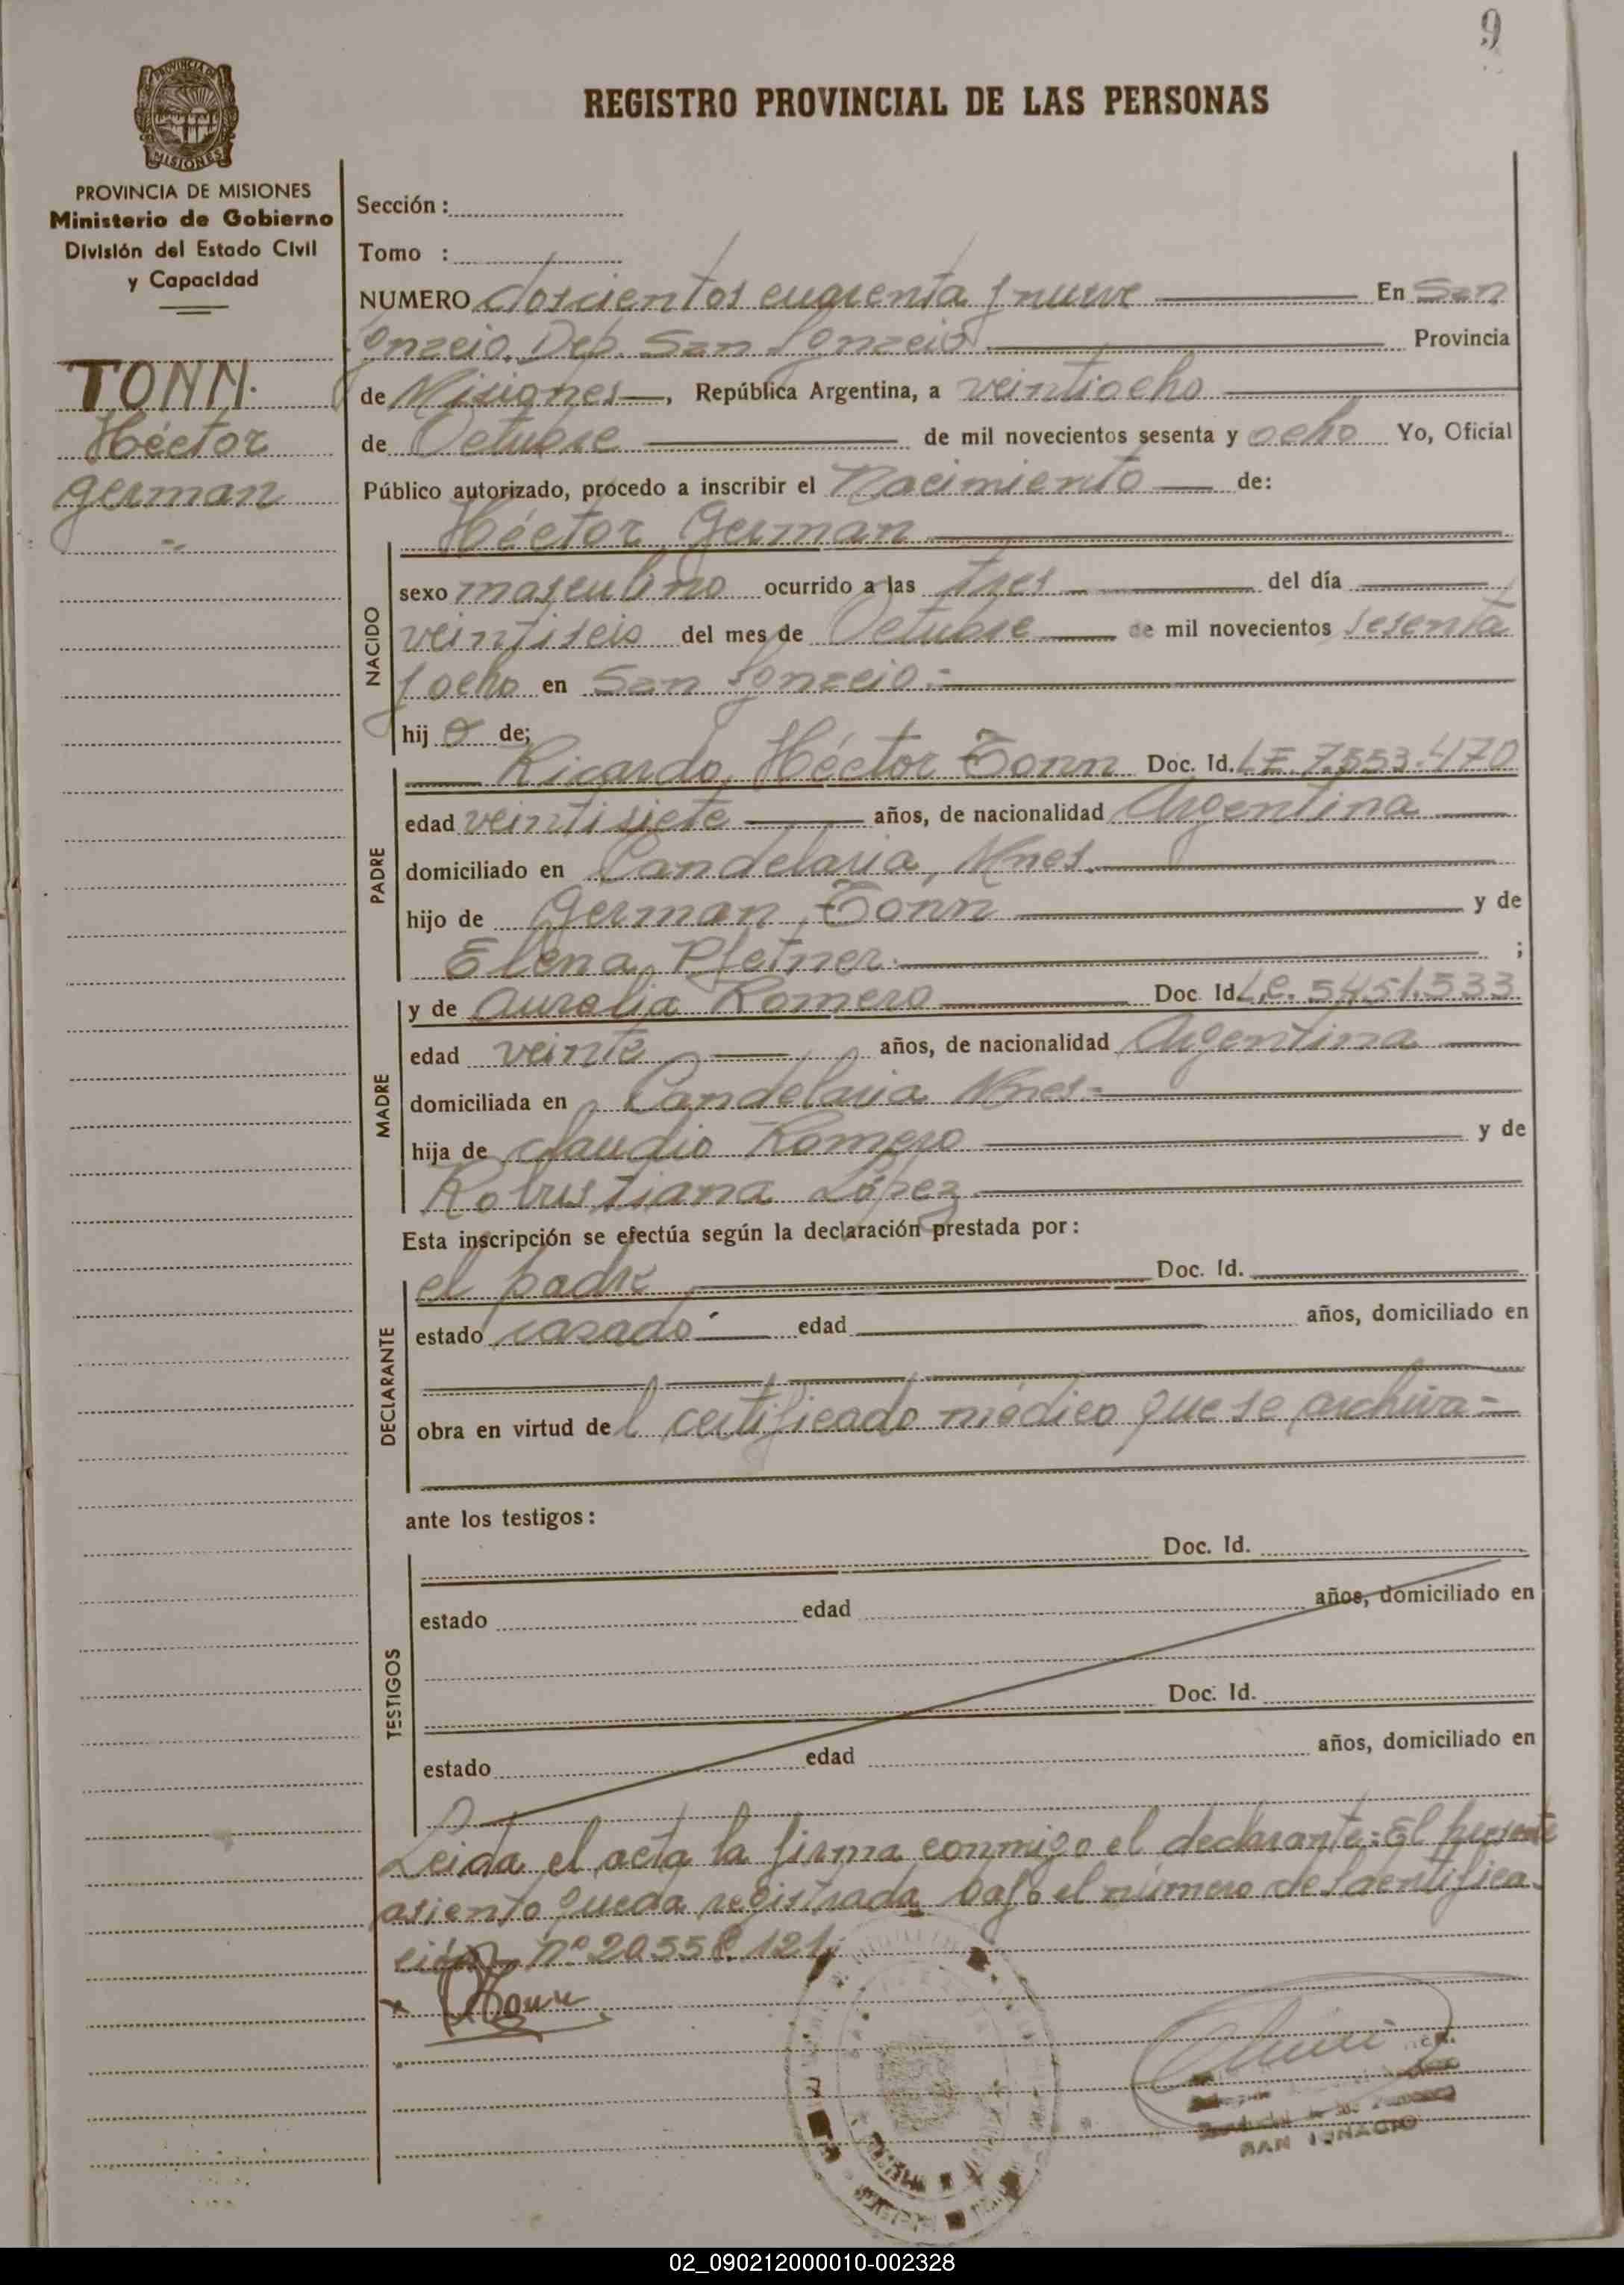 9
REGISTRO PROVINCIAL DE LAS PERSONAS
PROVINCIA DE MISIONES
Ministerio de Gobierno
División del Estado Civil
y Capacidad
TONN.
Héctor
German
Sección :
Tomo :
NUMERO doscientos cuarenta y nueve En San
Ignacio. Dep. San Ignacio Provincia
de Misiones, República Argentina, a veintiocho
de Octubre de mil novecientos sesenta y ocho Yo, Oficial
Público autorizado, procedo a inscribir el Nacimiento de:
Héctor German
NACIDO
sexo masculino ocurrido a las tres del día
veintiseis del mes de Octubre de mil novecientos sesenta
y ocho en San Ignacio.
hijo de;
PADRE
Ricardo Héctor Tonn Doc. Id. L.E. 7.553.470
edad veintisiete años, de nacionalidad Argentina
domiciliado en Candelaria, Mnes.
hijo de German Tonn y de
Elena ;
MADRE
y de Aurelia Romero Doc. Id. L.C. 5451.533
edad veinte años, de nacionalidad Argentina
domiciliada en Candelaria Mnes.
hija de Claudio Romero y de
Robustiana López
Esta inscripción se efectúa según la declaración prestada por :
DECLARANTE
el padre Doc. Id.
estado casado edad años, domiciliado en
obra en virtud del certificado médico que se archiva
ante los testigos :
TESTIGOS
Doc. Id.
estado edad años, domiciliado en
Doc. Id.
estado edad años, domiciliado en
Leida el acta la firma conmigo el declarante. El presente
asiento queda registrada bajo el número de Identifica-
ción nº 20.558.121
SAN IGNACIO
02_090212000010-002328